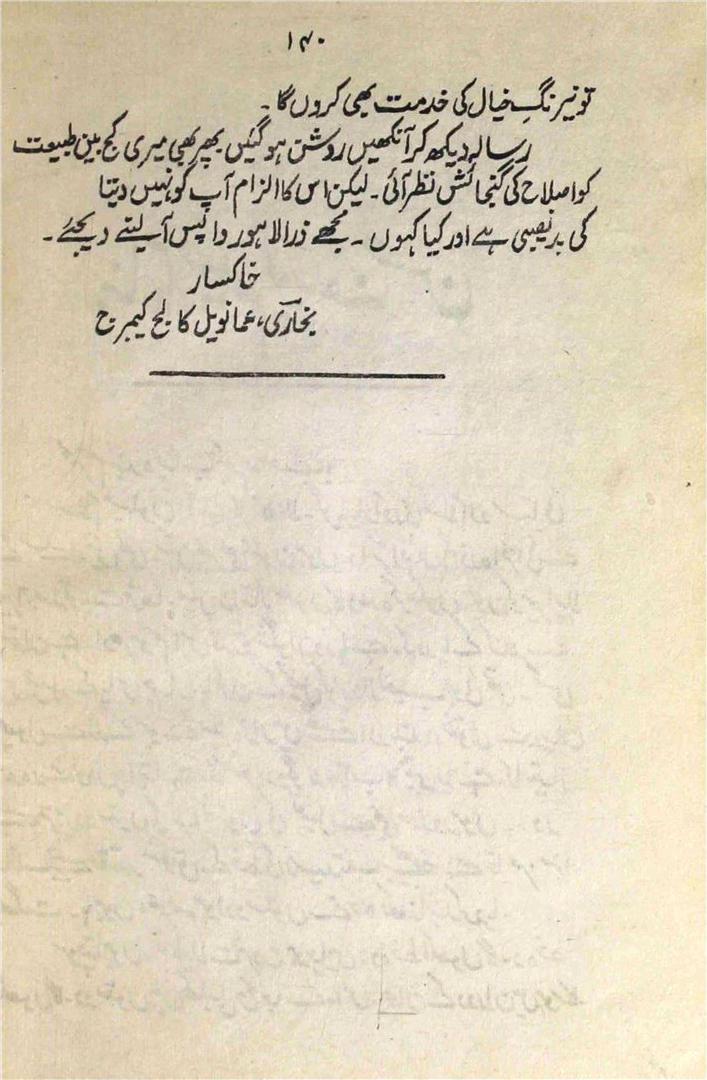 ۱۴۰
تو نیرنگِ خیال کی خدمت بھی کروں گا۔
رسالہ دیکھ کر آنکھیں روشن ہو گئیں پھر بھی میری کج بین طبیعت
کو اصلاح کی گنجائش نظر آئی۔ لیکن اس کا الزام آپ کو نہیں دیتا
کی بدنصیبی ہے اور کیا کہوں۔ مجھے ذرا لاہور واپس آ لینے دیجئے۔
خاکسار
بخاری، عمانویل کالج کیمبرج